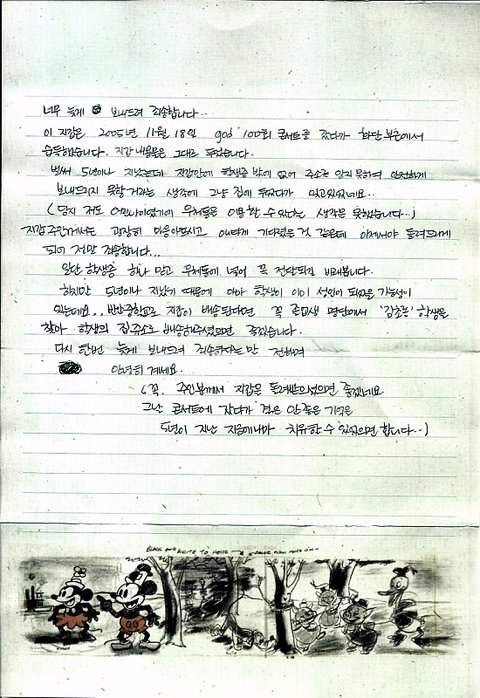 너무 늦게 보내드려 죄송합니다..
이 지갑은 2005년 11월 18일 god 100회 콘서트를 갔다가 화단 부근에서
습득했습니다. 지갑 내용물은 그대로 두었습니다.
벌써 5년이나 지났는데 지갑안에 학생증 밖에 없어 주소를 알지 못하여 안전하게
보내드리지 못할거라는 생각에 그냥 집에 두었다가 잊고있었네요..
(당시 저도 어린나이였기에 우체통은 이용할 수 있다는 생각은 못했습니다..)
지갑 주인께서는 굉장히 마음아프시고, 애타게 기다렸을 것 같은데 이제서야 돌려드리게
되어 정말 죄송합니다...
일단 학생증 하나 믿고 우체통에 넣어 꼭 전달되길 바래봅니다.
하지만 5년이나 지났기 때문에 아마 학생이 이미 성인이 되었을 가능성이
있는데요.. 중학교로 지갑이 배송된다면 꼭 졸업생 명단에서 학생을
찾아 학생의 집 주소로 배송해주셨으면 좋겠습니다.
다시 한번 늦게 보내드려 죄송하다는 말 전하며
안녕히 계세요.
(꼭. 주인분께서 지갑을 돌려받으셨으면 좋겠네요
그날 콘서트에 갔다가 겪은 안좋은 기억을
5년이 지난 지금에나마 치유할 수 있었으면 합니다..)
BLACK AND WHITE TO